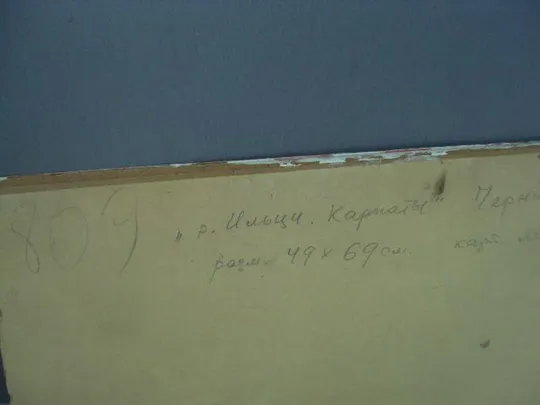 809
„р. Ильци. Карпаты" Черн
разм. 49 х 69 см. карт.